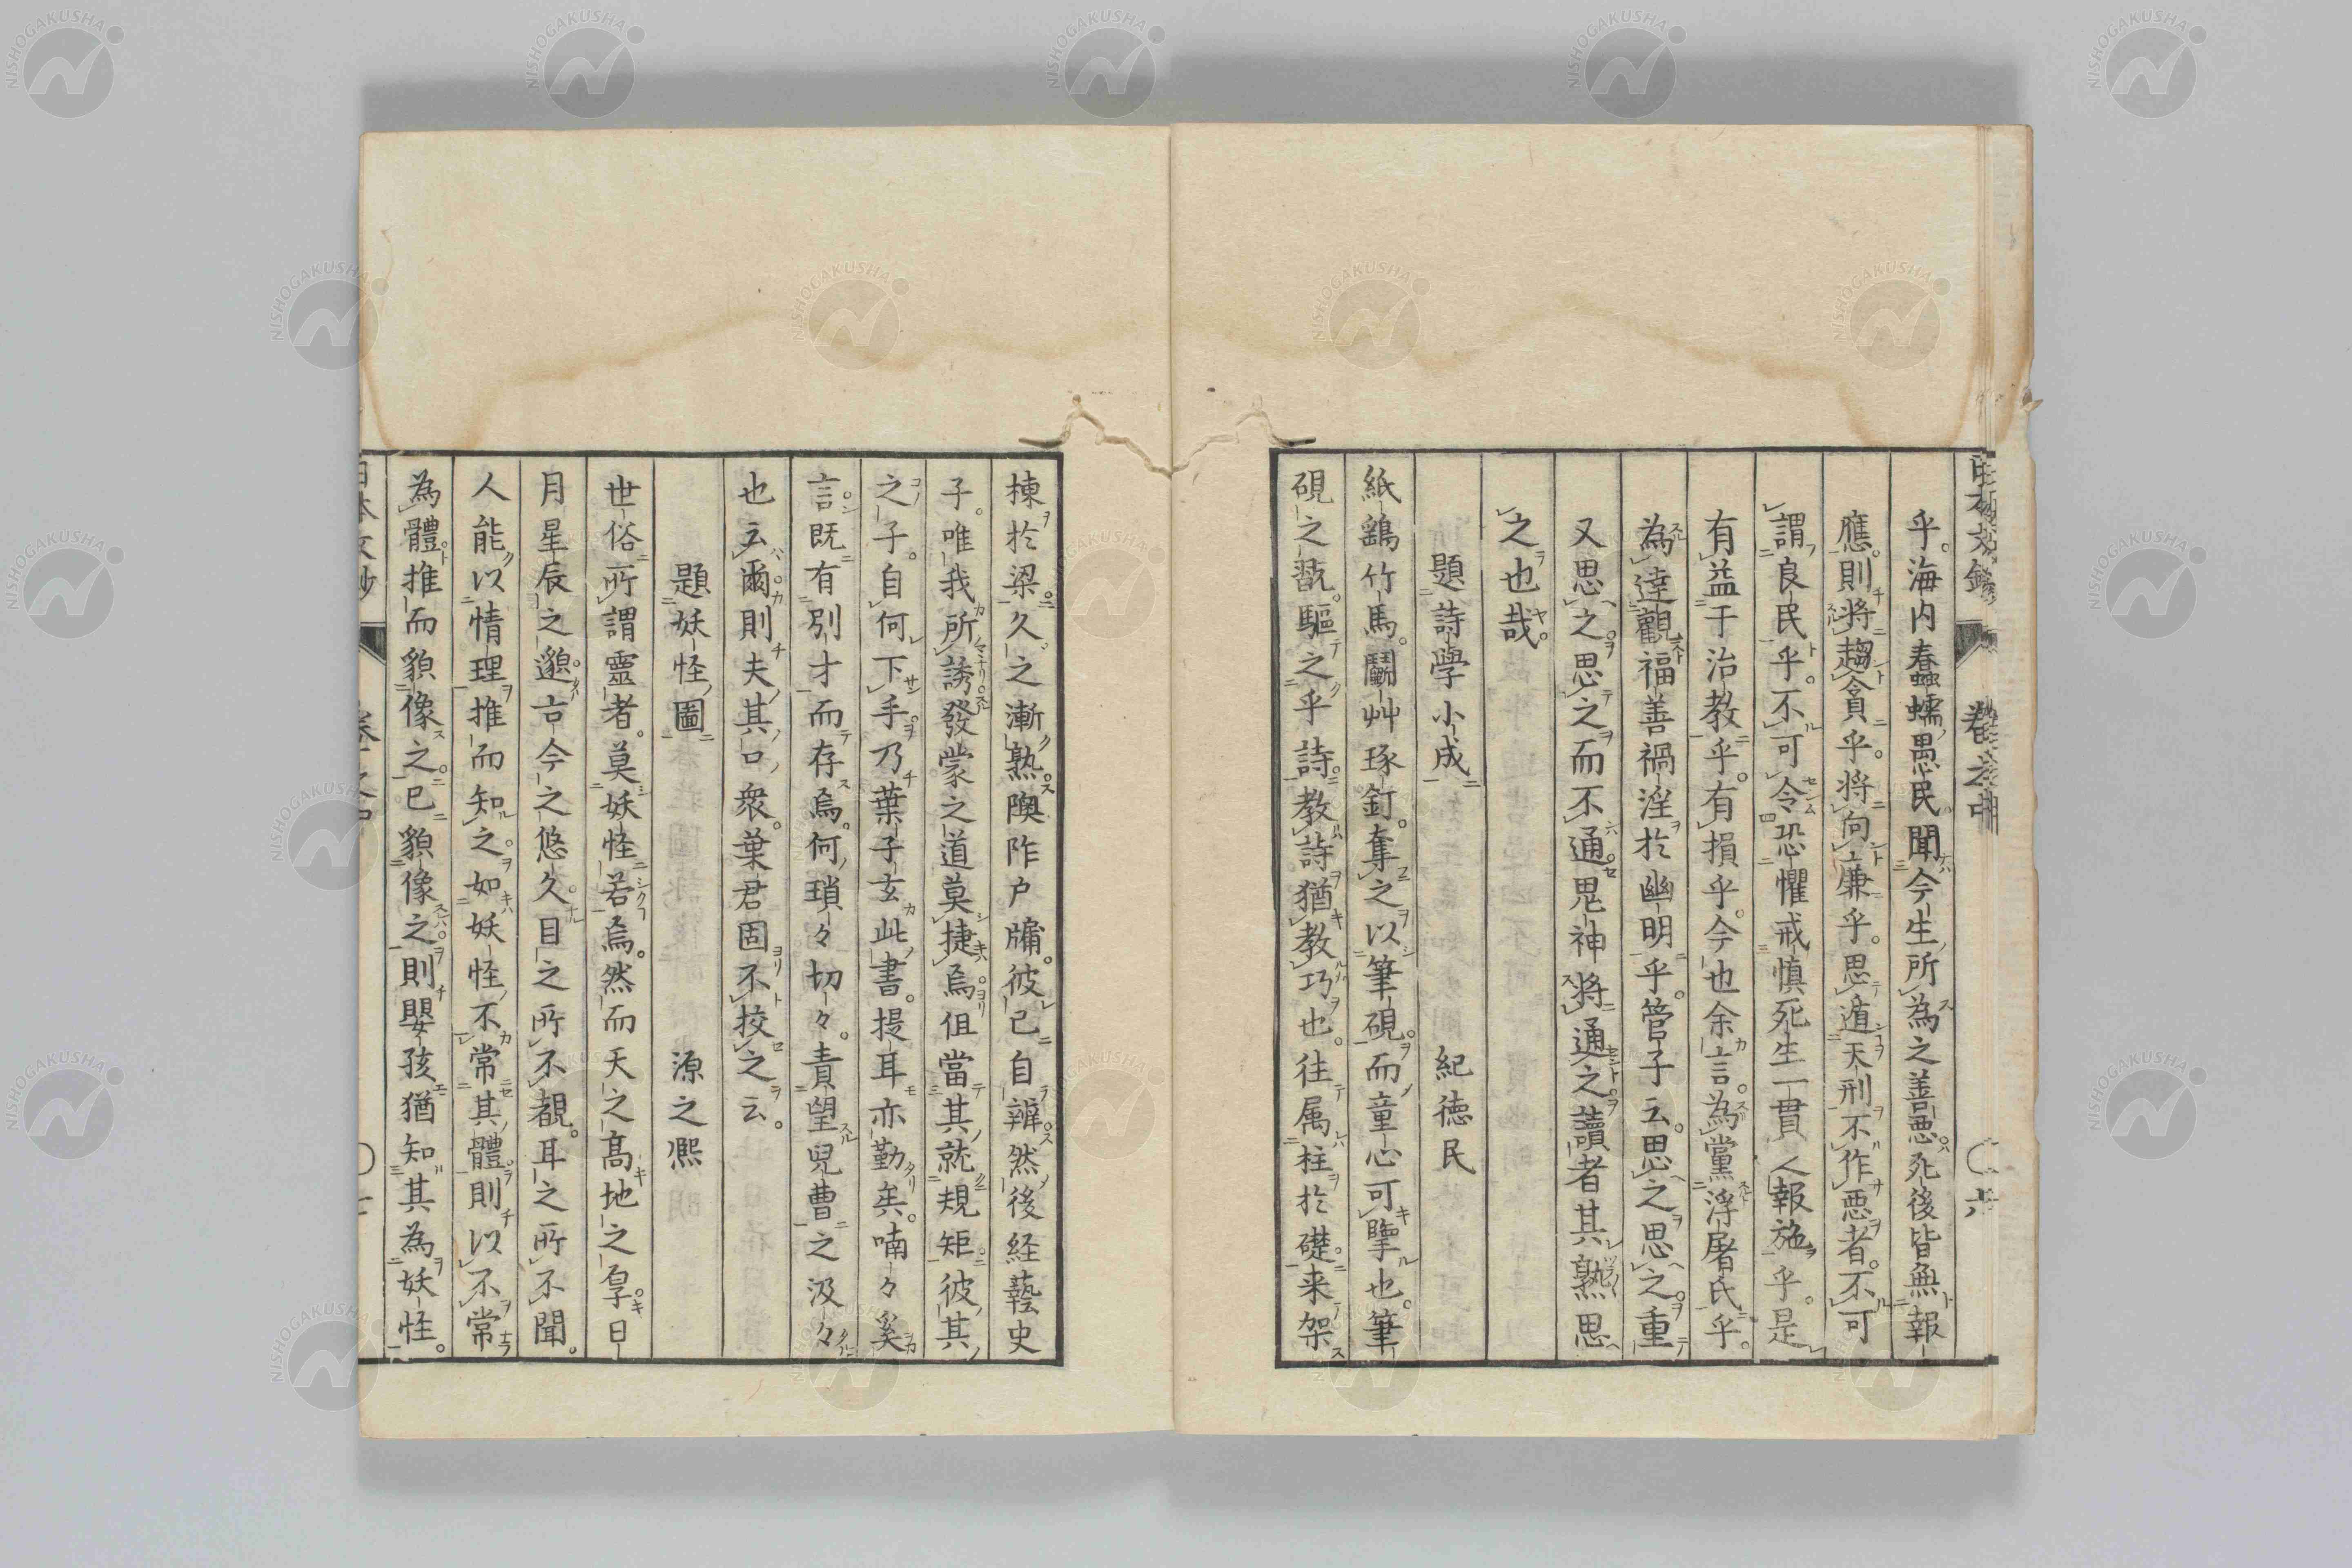 乎。海内蠢蠕愚民。聞今生所為之善悪。死後皆無報
應。則將趨貪乎。將向廉乎。思遁天刑不作悪者。不可
謂良民乎。不可令恐懼戒慎死生一貫人報施乎。是
有益于治教乎。有損乎。今也余言。為黨浮屠氏乎。
為達觀福善禍淫於幽明乎。管子云。思之思之。重
又思之。思之而不通。鬼神將通之。讀者其熟思
之也哉。
題詩學小成 紀徳民
紙鷂竹馬。鬬艸琢釘。奪之以筆硯。而童心可掔也。筆
硯之翫。驅之乎詩。教詩猶教巧也。往属柱於礎。来架
棟於梁。久之漸熟。隩阼户牖。彼已自辨。然後経藝史
子。唯我所誘發。蒙之道莫捷焉。但當其就規矩。彼其
之子。自何下手。乃葉子玄此書。提耳亦勤矣。喃々奚
言。既有別才而存焉。何瑣々切々。責望兒曹之汲々
也云爾。則夫其口衆。葉君固不挍之云。
題妖怪圖 源之熈
世俗所謂靈者。莫妖怪若焉。然而天之高地之厚。日
月星辰之邈。古今之悠久。目之所不覩。耳之所不聞。
人能以情理推而知之。如妖怪不常其體。則以不常
為體。推而貌像之。已貌像之。則嬰孩猶知其為妖怪。
日本文鈔 巻之中 〇六